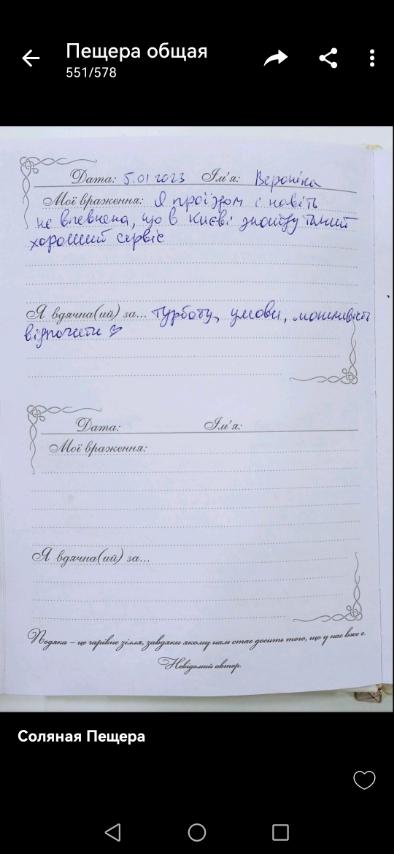 Пещера общая
551/578
Дата: 5.01 2023 Ім'я: Вероніка
Мої враження: Я проїздом і навіть
не впевнена, що в Києві знайду такий
хороший сервіс
Я вдячна(ий) за... турботу, умови, можливість
відпочити
Дата: Ім'я:
Мої враження:
Я вдячна(ий) за...
Подяка – це чарівне зілля, завдяки якому нам стає досить того, що у нас вже є.
Невідомий автор.
Соляная Пещера